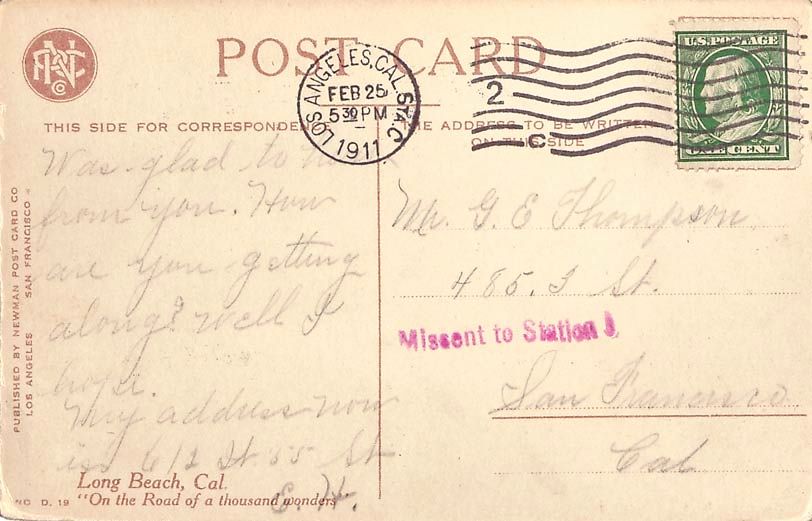 POST CARD
LOS ANGELES, CAL. STA. C
FEB 25
5 30 PM
1911
2
C
U.S. POSTAGE
ONE CENT
THIS SIDE FOR CORRESPONDENCE
THE ADDRESS TO BE WRITTEN
ON THIS SIDE
Was glad to
from you. How
are you getting
along? well I
hope.
My address now
is 612 55 St
E. H.
Mr. G. E Thompson
485. 3 St.
Missent to Station J
San Francisco
Cal
PUBLISHED BY NEWMAN POST CARD CO
LOS ANGELES SAN FRANCISCO
Long Beach, Cal.
NO D. 19 "On the Road of a thousand wonders"